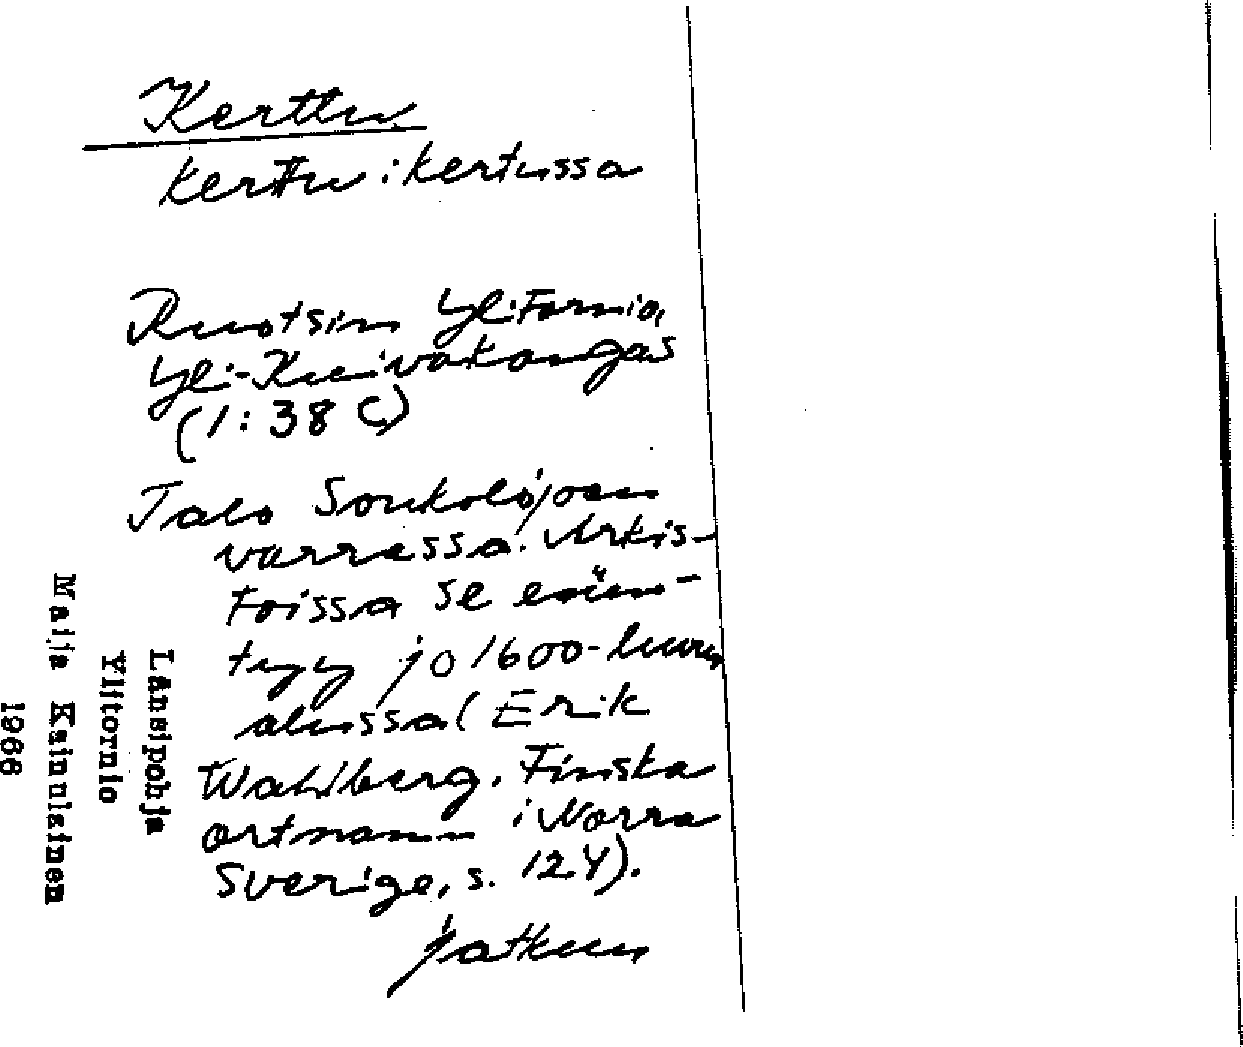 Kerttu
Kerttu : Kertussa
Ruotsin Ylitornio,
Yli-Kuivakangas
(1:38 C)
Talo Soukolojoen
varressa. Arkis-
toissa se esiin-
tyy jo 1600-luvun
alussa (Erik
Wahlberg. Finska
ortnamn i Norra
Sverige, s. 124).
jatkuu
Länsipohja
Ylitornio
Maija Kainulainen
1966